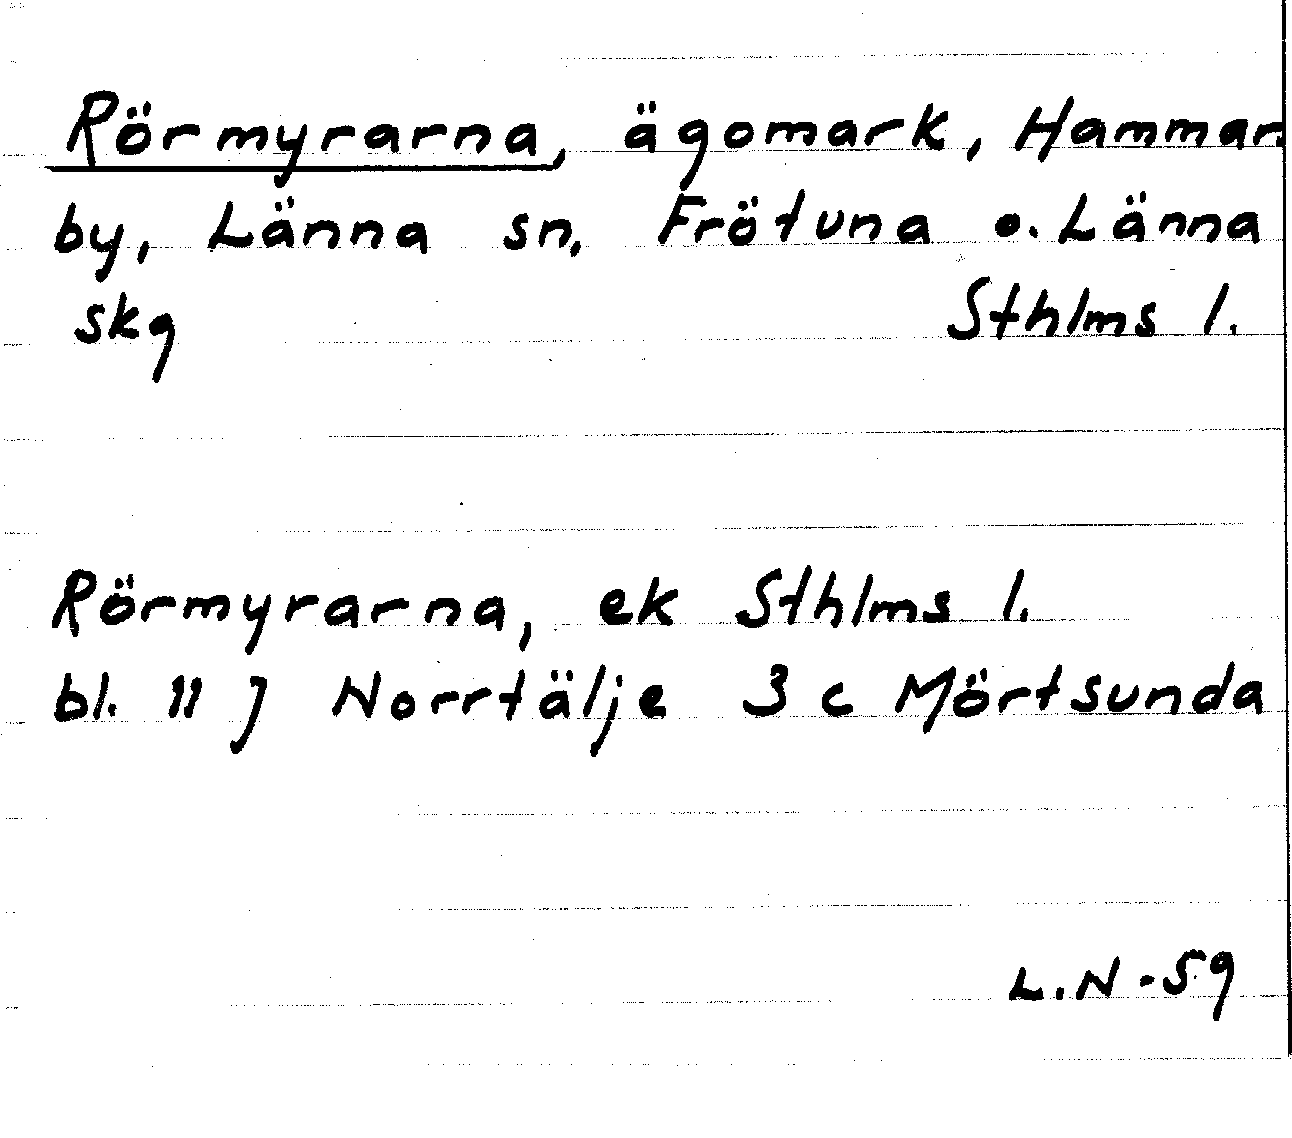 Rörmyrarna, ägomark, Hammar-
by, Länna sn, Frötuna o. Länna
skg Sthlms l.
Rörmyrarna, ek Sthlms l.
bl. 11 J Norrtälje 3 c Mörtsunda
L.N -59